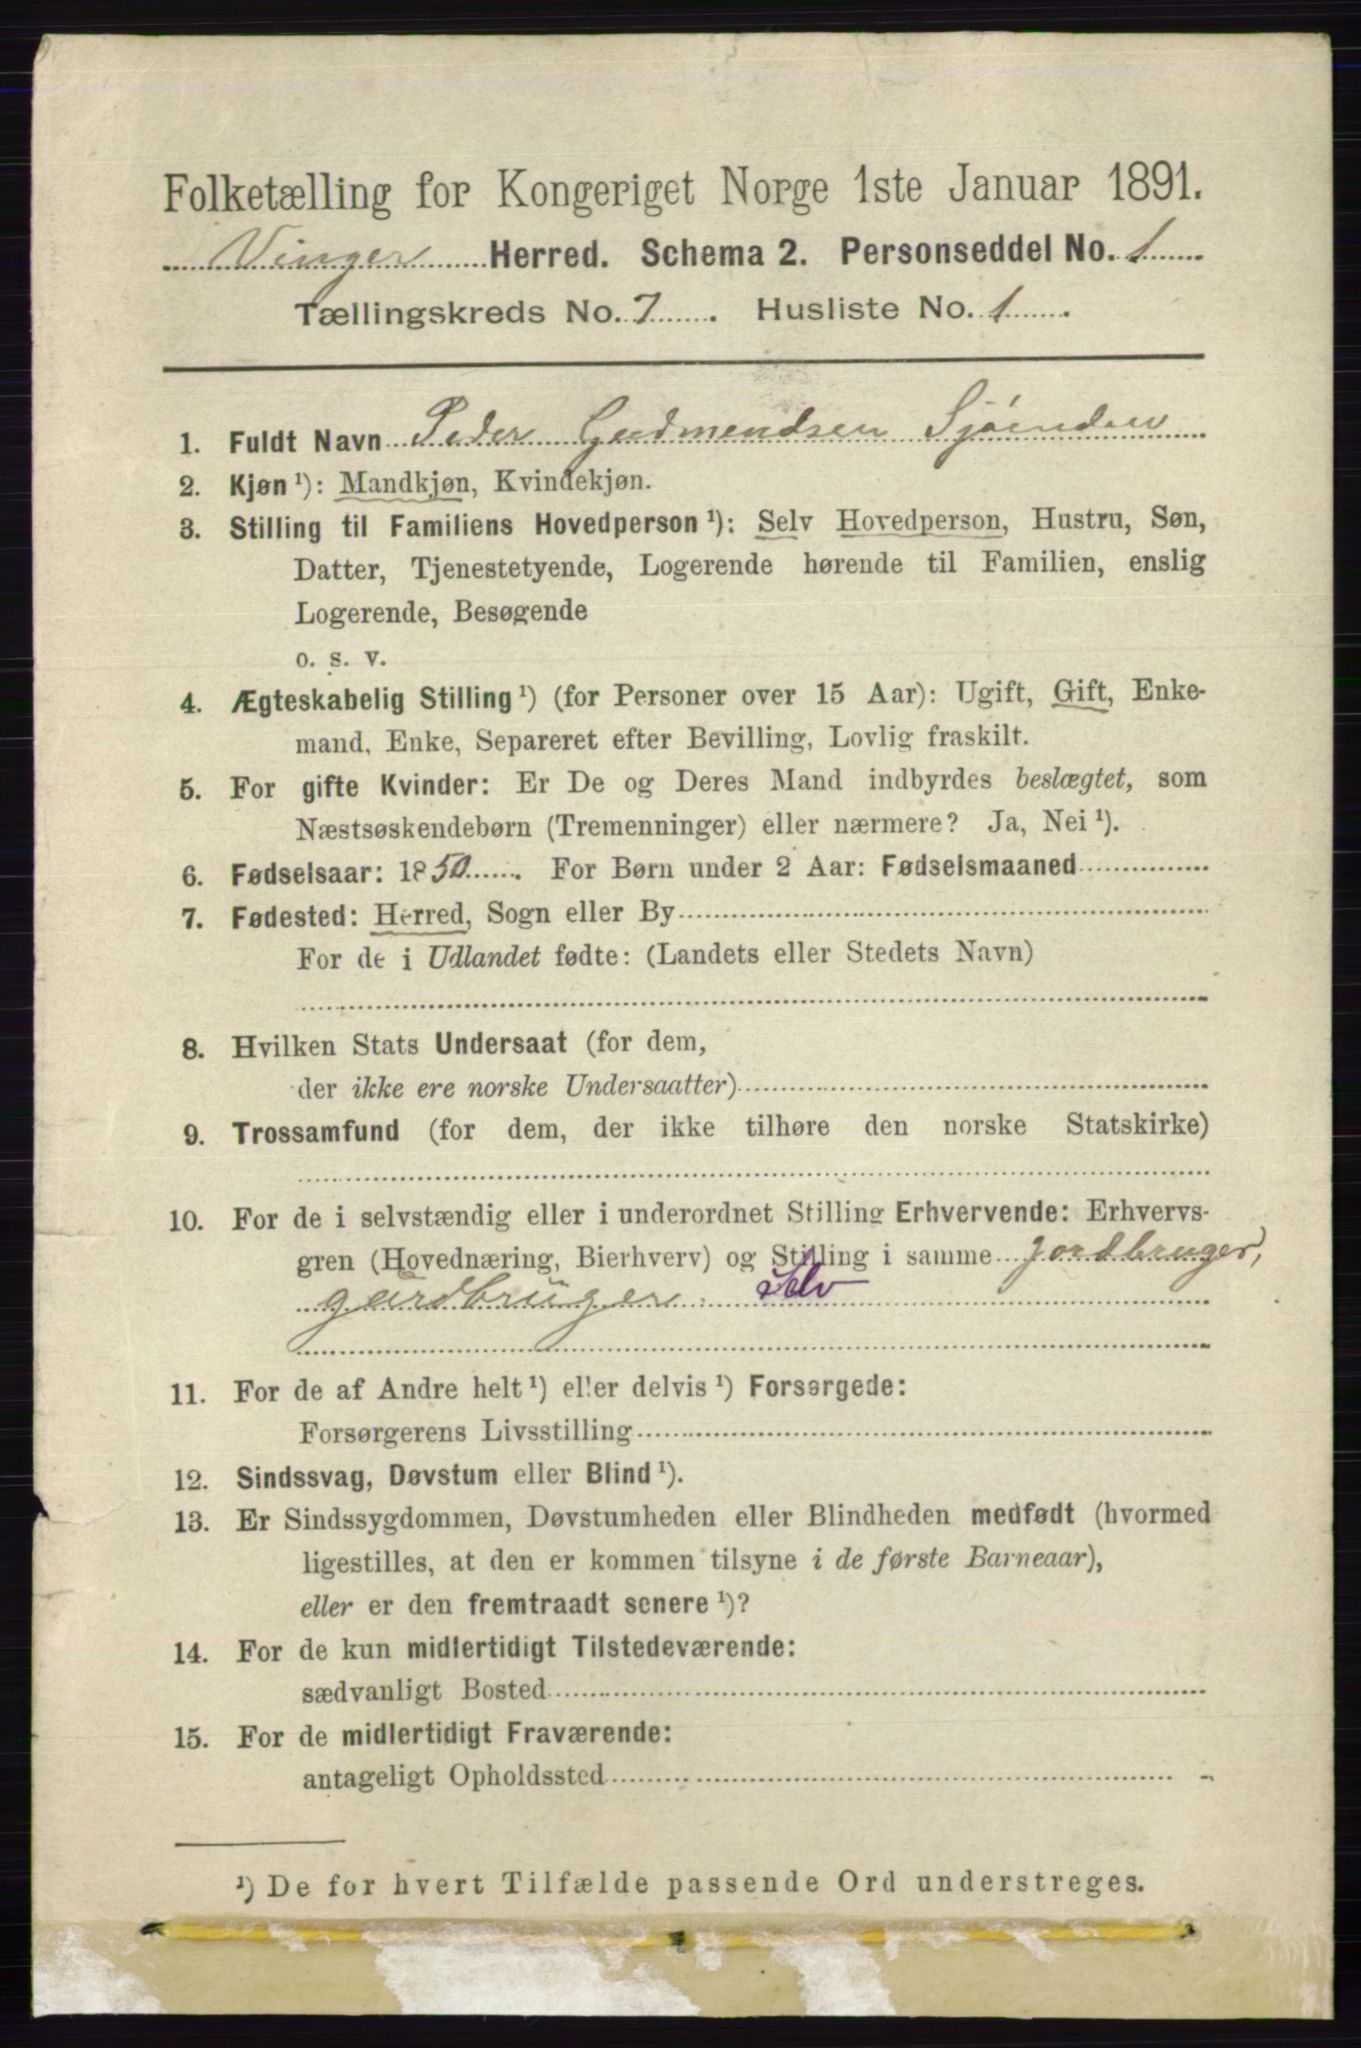 Folketælling for Kongeriget Norge 1ste Januar 1891.
Vinger Herred. Schema 2. Personseddel No. 1
Tællingskreds No. 7. Husliste No. 1.
1. Fuldt Navn Peder Gudmendsen
2. Kjøn¹): Mandkjøn, Kvindekjøn.
3. Stilling til Familiens Hovedperson¹): Selv Hovedperson, Hustru, Søn,
Datter, Tjenestetyende, Logerende hørende til Familien, enslig
Logerende, Besøgende
o. s. v.
4. Ægteskabelig Stilling¹) (for Personer over 15 Aar): Ugift, Gift, Enke-
mand, Enke, Separeret efter Bevilling, Lovlig fraskilt.
5. For gifte Kvinder: Er De og Deres Mand indbyrdes beslægtet, som
Næstsøskendebørn (Tremenninger) eller nærmere? Ja, Nei¹).
6. Fødselsaar: 1850. For Børn under 2 Aar: Fødselsmaaned
7. Fødested: Herred, Sogn eller By
For de i Udlandet fødte: (Landets eller Stedets Navn)
8. Hvilken Stats Undersaat (for dem,
der ikke ere norske Undersaatter)
9. Trossamfund (for dem, der ikke tilhøre den norske Statskirke)
10. For de i selvstændig eller i underordnet Stilling Erhvervende: Erhvervs-
gren (Hovednæring, Bierhverv) og Stilling i samme jordbruger,
gardbruger. Selv
11. For de af Andre helt¹) eller delvis¹) Forsørgede:
Forsørgerens Livsstilling
12. Sindssvag, Døvstum eller Blind¹).
13. Er Sindssygdommen, Døvstumheden eller Blindheden medfødt (hvormed
ligestilles, at den er kommen tilsyne i de første Barneaar),
eller er den fremtraadt senere¹)?
14. For de kun midlertidigt Tilstedeværende:
sædvanligt Bosted
15. For de midlertidigt Fraværende:
antageligt Opholdssted
¹) De for hvert Tilfælde passende Ord understreges.